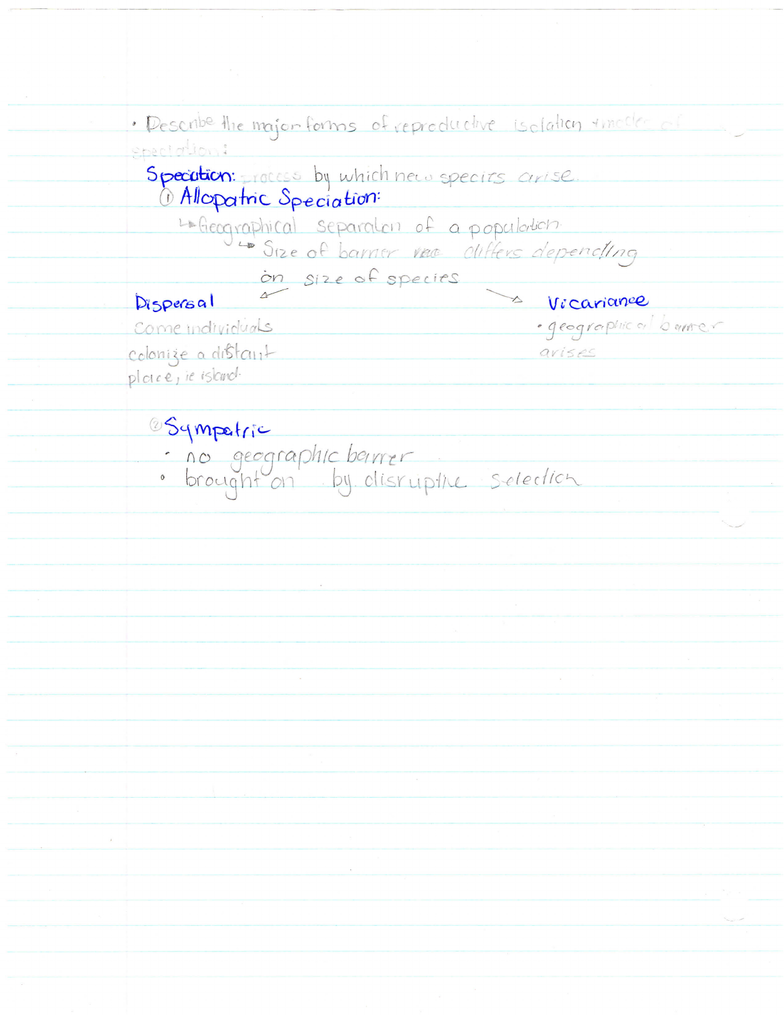 • Describe the major forms of reproductive isolation + modes of
speciation:
Speciation: process by which new species arise.
① Allopatric Speciation:
↳ Geographical separation of a population
↳ Size of barrier differs depending
on size of species
Dispersal Vicariance
Some individuals • geographical barrier
colonize a distant arises
place, ie island.
② Sympatric
• no geographic barrier
• brought on by disruptive selection